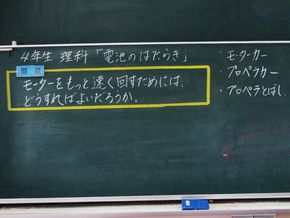 4年生 理科 「電池のはたらき」
問題
モーターをもっと速く回すためには、
どうすればよいだろうか。
・モーターカー
・プロペラカー
・プロペラとばし